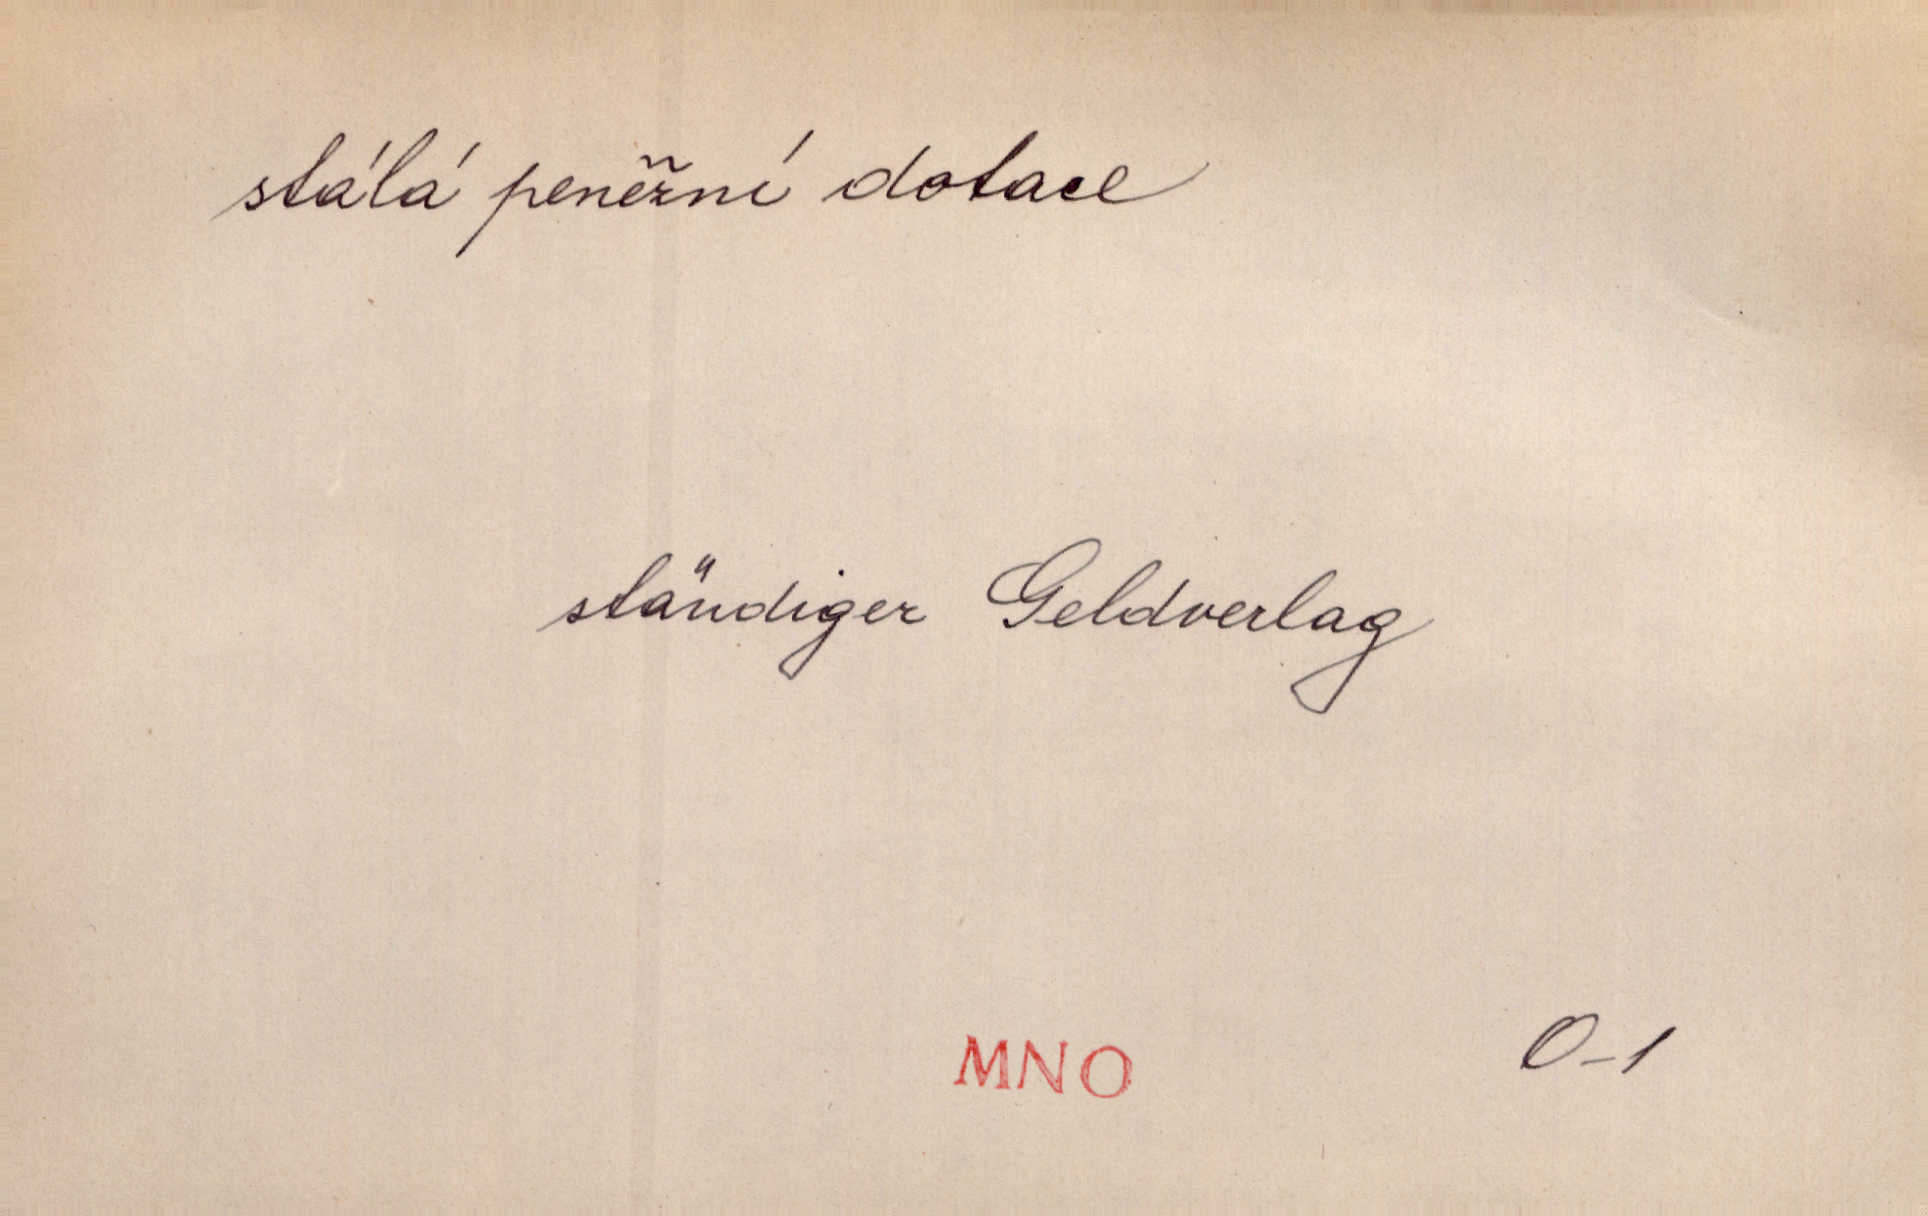 stálá peněžní dotace
ständiger Geldverlag
MNO
O-1